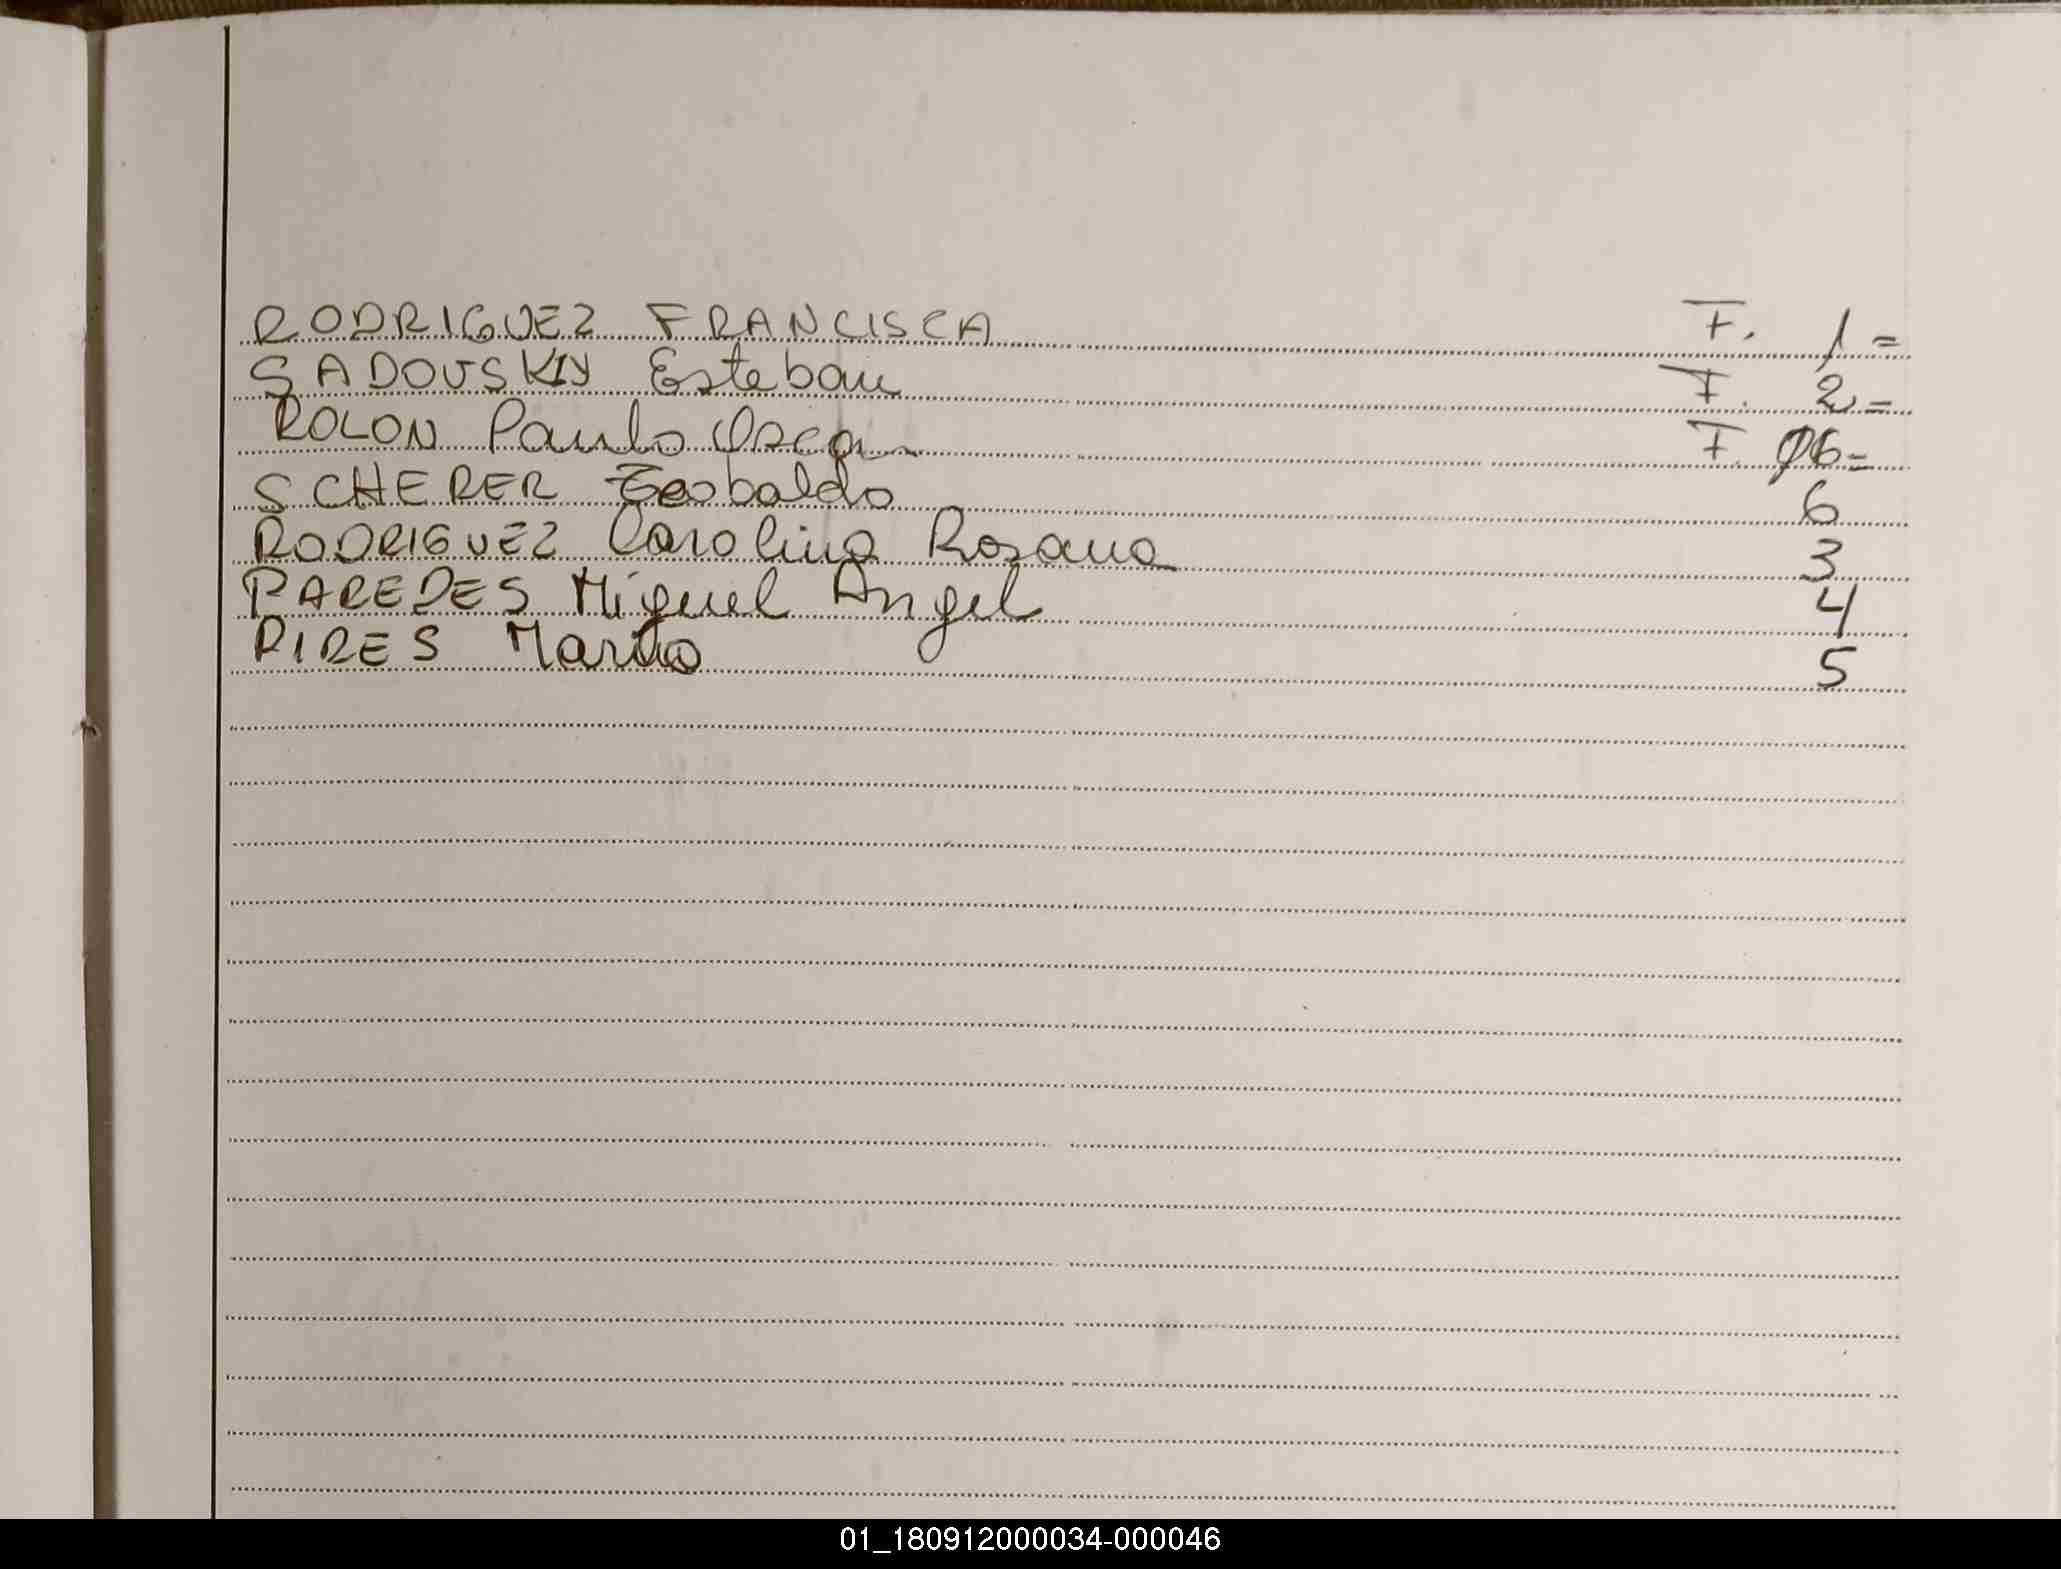 RODRIGUEZ FRANCISCA F. 1=
SADOVSKIY Esteban F. 2=
ROLON Paulo Oscar F. 06=
SCHERER Teobaldo 6
RODRIGUEZ Carolina Rosana 3
PAREDES Miguel Angel 4
PIRES Marito 5
01_180912000034-000046